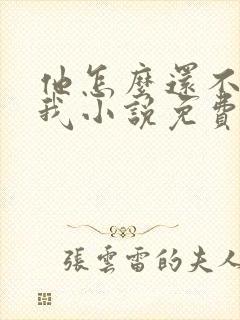 他怎麼還不
我小說免費
張雲雷的夫人